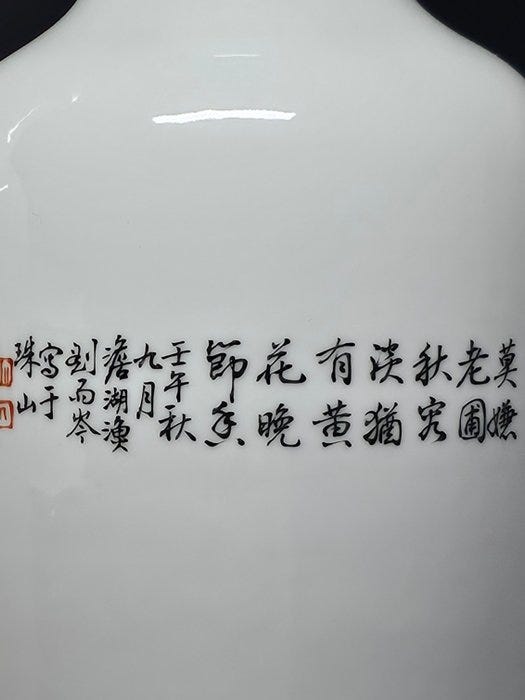 莫嫌
老圃
秋容
淡猶
有黃
花晚
節香
壬午秋
九月
澹湖漁
劉雨岑
寫于
珠山